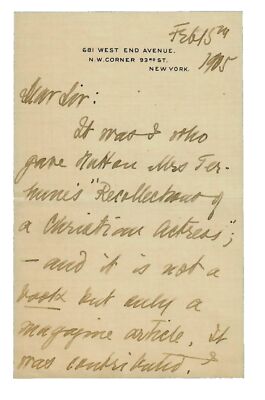 Feb 15th
681 WEST END AVENUE.
N.W. CORNER 93RD ST.
NEW YORK.
1905
Dear Sir:
It was I who
gave Mrs Ter-
hune's "Recollections of
a Christian Actress";
– and it is not a
book but only a
magazine article. It
was contributed. I